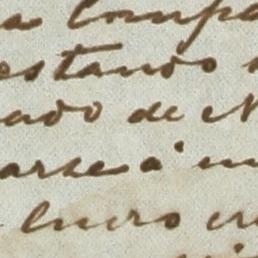 a Compa
estando
ado de N
arse á in
lucro en